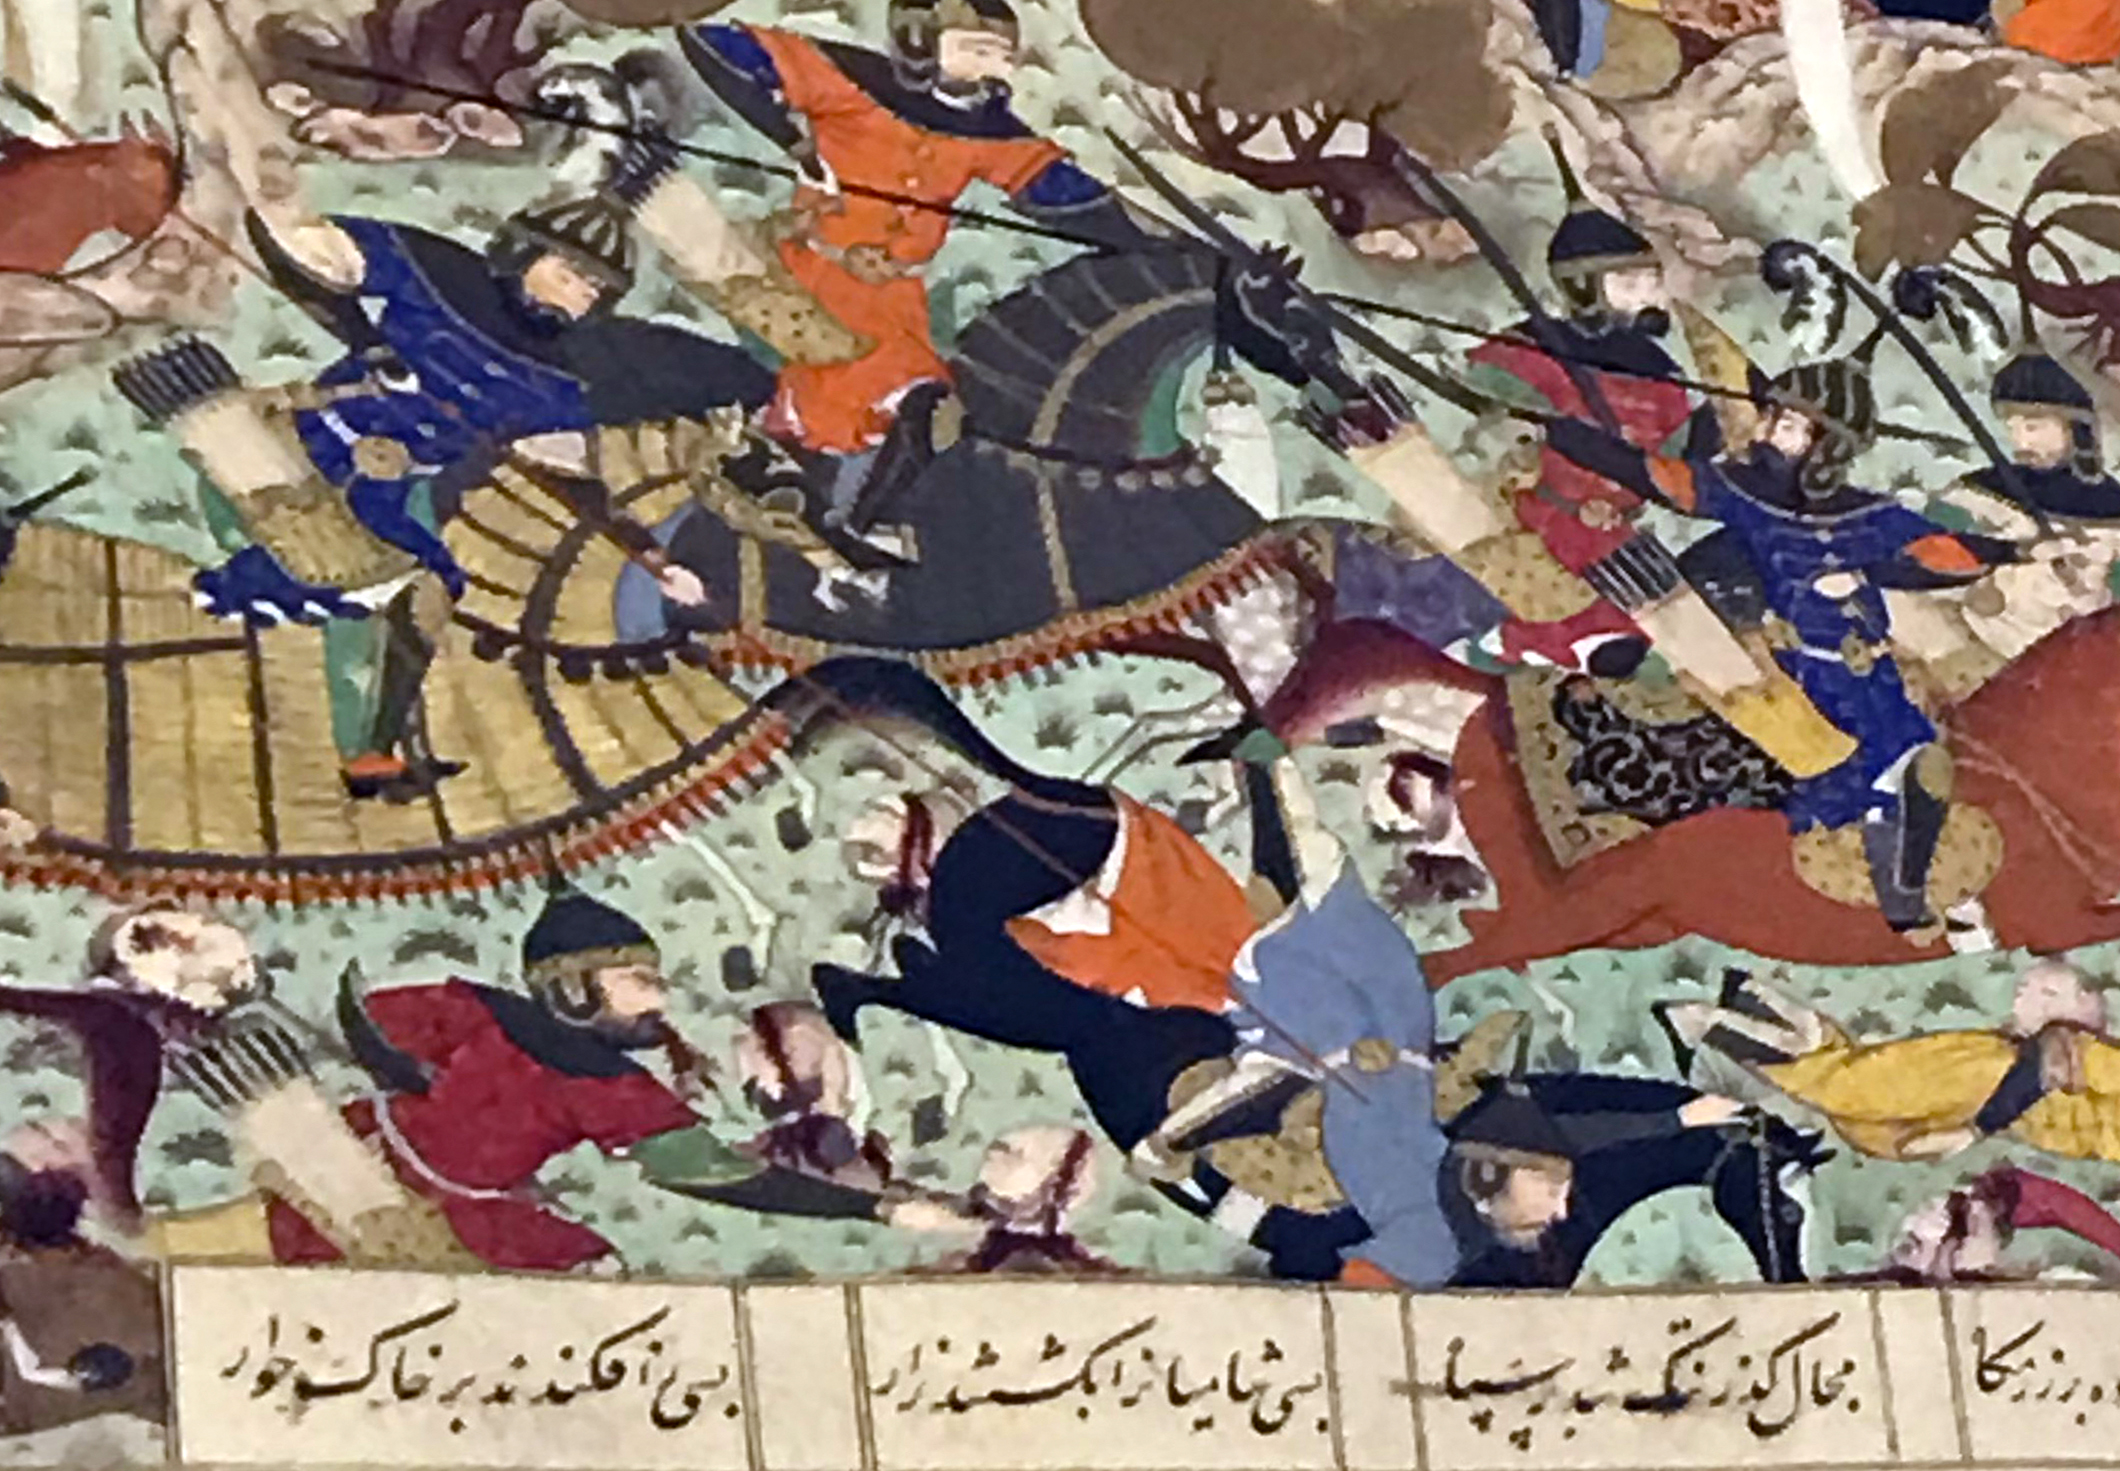 مجال گذر تنگ شد بر سپاه
بسی شامیانرا بکشتند زار
بسی را فکندند بر خاک خوار